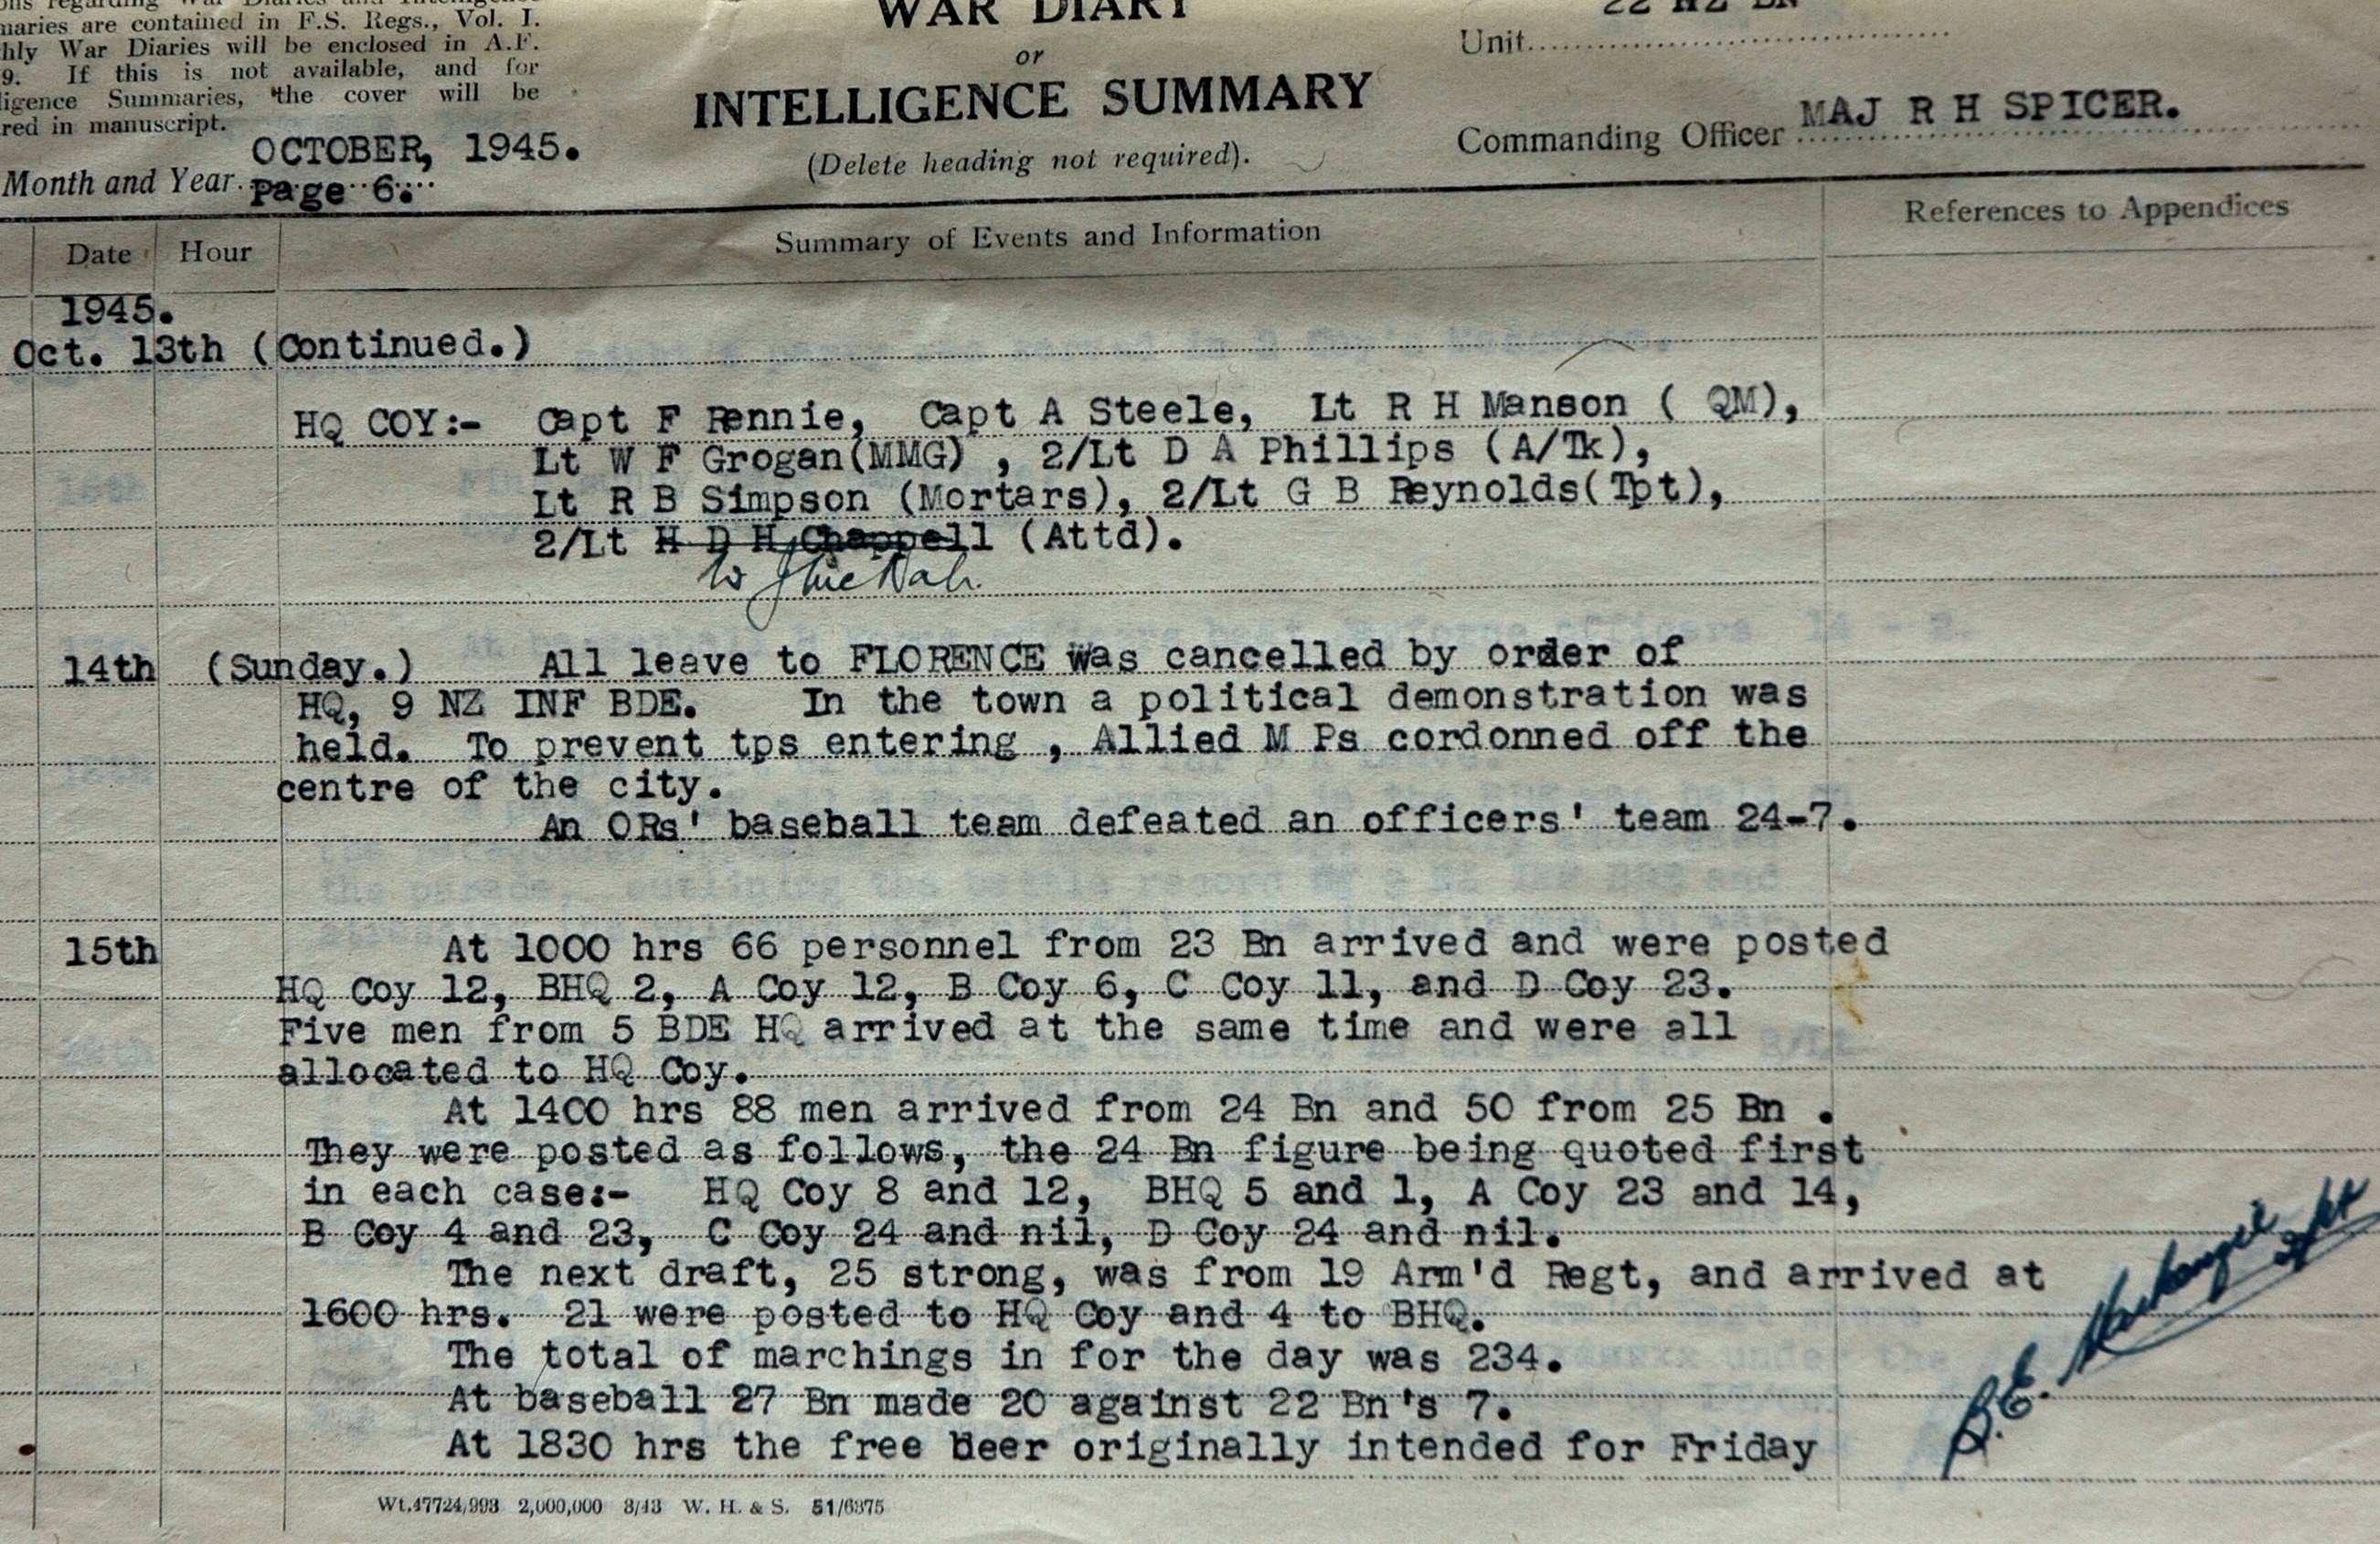 regarding War Diaries and Intelligence
maries are contained in F.S. Regs., Vol. I.
hly War Diaries will be enclosed in A.F.
9. If this is not available, and for
ligence Summaries, the cover will be
red in manuscript.
WAR DIARY
or
INTELLIGENCE SUMMARY
(Delete heading not required).
Unit 22 NZ BN
Commanding Officer MAJ R H SPICER.
Month and Year OCTOBER, 1945.
Page 6.
Date Hour Summary of Events and Information References to Appendices
1945.
Oct. 13th (Continued.)
HQ COY:- Capt F Rennie, Capt A Steele, Lt R H Manson ( QM),
Lt W F Grogan(MMG) , 2/Lt D A Phillips (A/Tk),
Lt R B Simpson (Mortars), 2/Lt G B Reynolds(Tpt),
2/Lt H D H Chappell (Attd).
14th (Sunday.) All leave to FLORENCE was cancelled by order of
HQ, 9 NZ INF BDE. In the town a political demonstration was
held. To prevent tps entering , Allied M Ps cordonned off the
centre of the city.
An ORs' baseball team defeated an officers' team 24-7.
15th At 1000 hrs 66 personnel from 23 Bn arrived and were posted
HQ Coy 12, BHQ 2, A Coy 12, B Coy 6, C Coy 11, and D Coy 23.
Five men from 5 BDE HQ arrived at the same time and were all
allocated to HQ Coy.
At 1400 hrs 88 men arrived from 24 Bn and 50 from 25 Bn .
They were posted as follows, the 24 Bn figure being quoted first
in each case:- HQ Coy 8 and 12, BHQ 5 and 1, A Coy 23 and 14,
B Coy 4 and 23, C Coy 24 and nil, D Coy 24 and nil.
The next draft, 25 strong, was from 19 Arm'd Regt, and arrived at
1600 hrs. 21 were posted to HQ Coy and 4 to BHQ.
The total of marchings in for the day was 234.
At baseball 27 Bn made 20 against 22 Bn's 7.
At 1830 hrs the free beer originally intended for Friday
B.E.
Wt.47724/993 2,000,000 3/43 W. H. & S. 51/6375